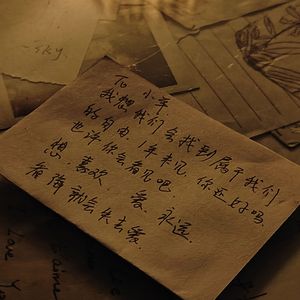 sky.
To 小年.
我想，我们会找到属于我们
的自由，1年未见，你还好吗.
也许你会看见吧.
想 喜欢 爱 永远.
后悔就会失去爱.
Love You
t'aime